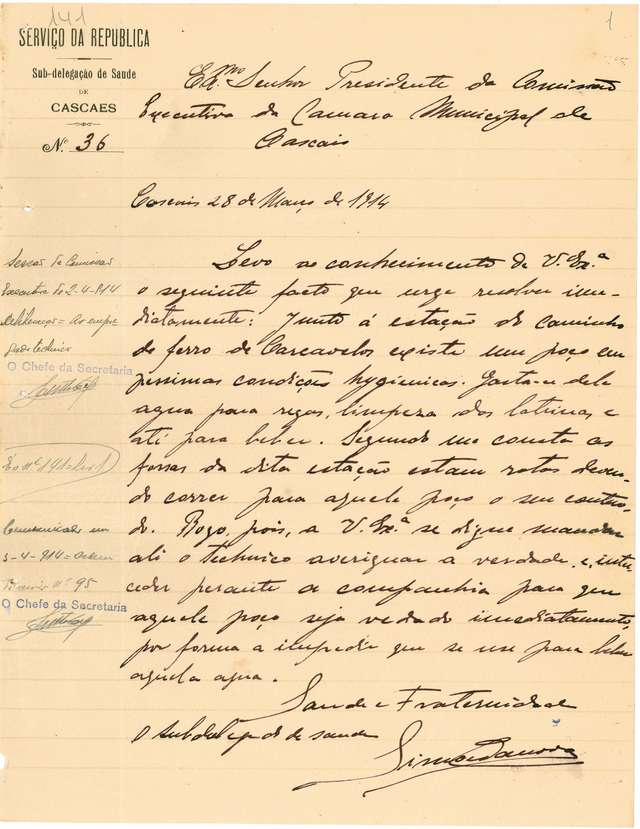 141
1
SERVIÇO DA REPUBLICA
Sub-delegação de Saude
DE
CASCAES
N.º 36
Ex.mo Senhor Presidente da Comissão
Executiva da Camara Municipal de
Cascais
Cascais 28 de Março de 1914
Levo ao conhecimento de V. Ex.ª
o seguinte facto que urge resolver ime-
diatamente: Junto á estação do caminho
de ferro de Carcavelos existe um poço em
pessimas condições hygienicas. Gasta-se dele
agua para regas, limpeza das latrinas e
até para beber. Segundo me consta as
fossas da dita estação estam rotas deven-
do correr para aquele poço o seu conteu-
do. Rogo, pois, a V. Ex.ª se digne mandar
ali o technico averiguar a verdade e, inter-
ceder perante a companhia para que
aquele poço seja vedado imediatamente,
por forma a impedir que se use para beber
aquela agua.
Saude e Fraternidade
O subdelegado de saude
Sessão da Comissão
Executiva de 2-4-914
Deliberação = Ao empre
gado technico
O Chefe da Secretaria
Comunicado em
3-4-914
n.º 95
O Chefe da Secretaria